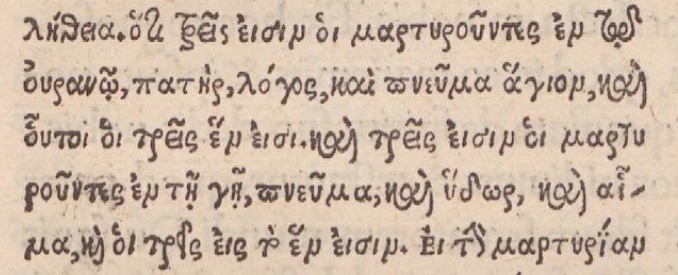 λήθεια. ὅτι τρεῖς εἰσιν ὁι μαρτυροῦντες ἐν τῷ
ὀυρανῷ, πατὴρ, λόγος, καὶ πνεῦμα ἅγιον, καὶ
ὗυτοι ὁι τρεῖς ἕν εἰσι. καὶ τρεῖς ἐισιν ὁι μαρτυ
ροῦντες ἐν τῇ γῇ, πνεῦμα, καὶ ὕδωρ, καὶ αἷ-
μα, καὶ ὁι τρεῖς εἰς τὸ ἕν ἐισιν. Ἐι τὴν μαρτυρίαν